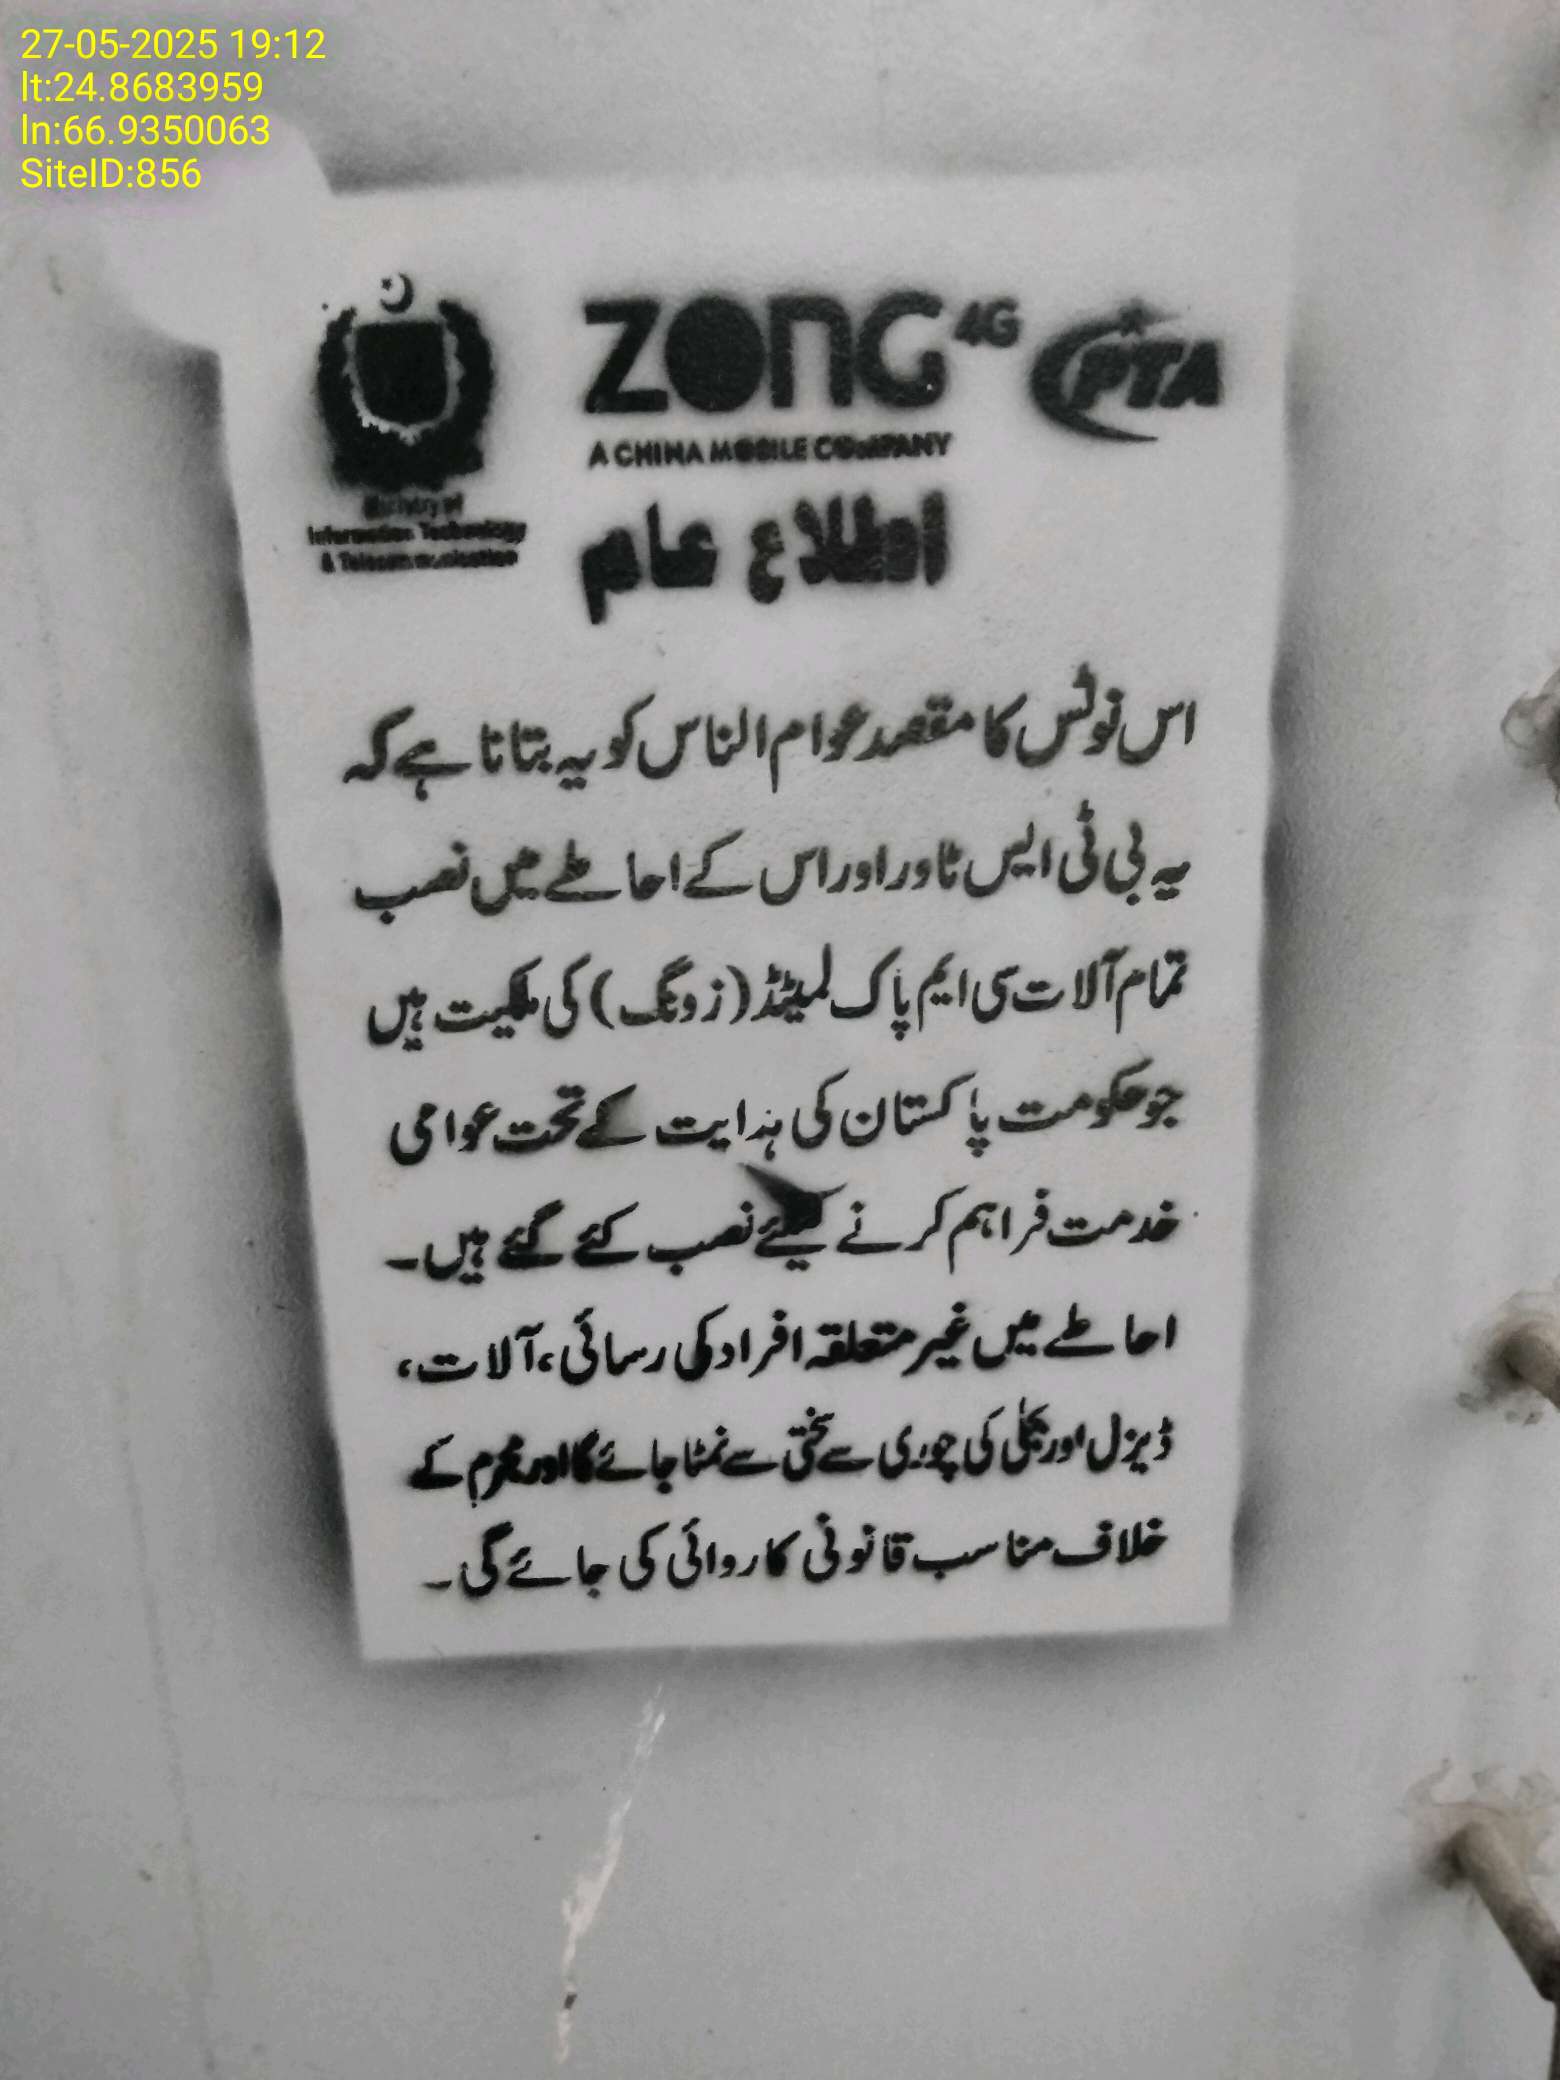 27-05-2025 19:12
lt:24.8683959
ln:66.9350063
SiteID:856
Ministry of
Information Technology
& Telecommunication
ZONG 4G
A CHINA MOBILE COMPANY
PTA
اطلاع عام
اس نوٹس کا مقصد عوام الناس کو یہ بتانا ہے کہ
یہ بی ٹی ایس ٹاور اور اس کے احاطے میں نصب
تمام آلات سی ایم پاک لمیٹڈ (زونگ) کی ملکیت ہیں
جو حکومت پاکستان کی ہدایت کے تحت عوامی
خدمت فراہم کرنے کیلئے نصب کئے گئے ہیں۔
احاطے میں غیر متعلقہ افراد کی رسائی، آلات،
ڈیزل اور بجلی کی چوری سے سختی سے نمٹا جائے گا اور مجرم کے
خلاف مناسب قانونی کاروائی کی جائے گی۔